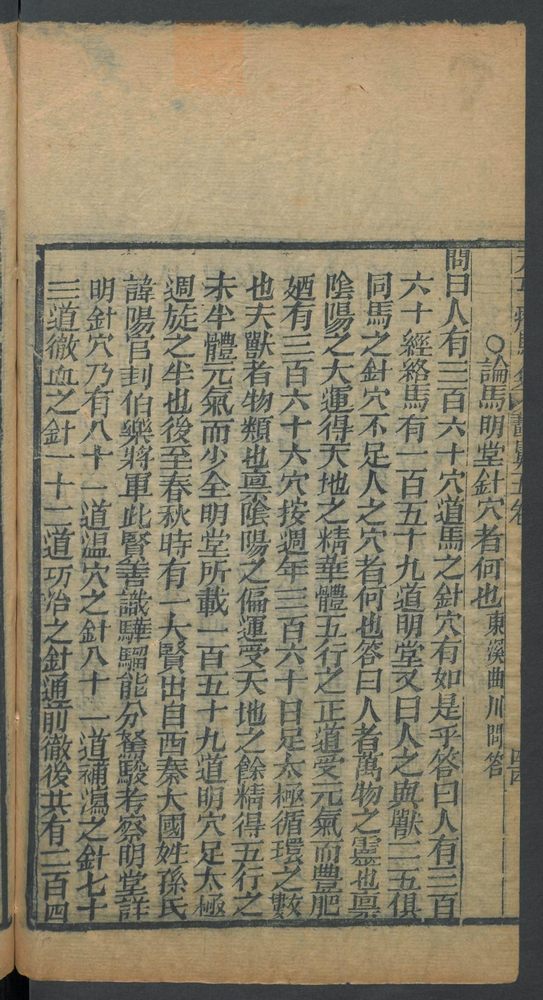 ○論馬明堂針穴者何也 東溪曲川問答
問曰人有三百六十穴道馬之針穴有如是乎答曰人有三百
六十經絡馬有一百五十九道明堂又曰人之與獸二五俱
同馬之針穴不足人之穴者何也答曰人者萬物之靈也禀
陰陽之大運得天地之精華體五行之正道受元氣而豊肥
廼有三百六十六穴按週年三百六十日足太極循環之數
也夫獸者物類也禀陰陽之偏運受天地之餘精得五行之
未半體元氣而少全明堂所載一百五十九道明穴足太極
週旋之半也後至春秋時有一大賢出自西秦大國姓孫氏
諱陽官封伯樂將軍此賢善識驊騮能分駑駿考察明堂詳
明針穴乃有八十一道温穴之針八十一道補瀉之針七十
三道徹血之針一十二道巧治之針通前徹後共有二百四